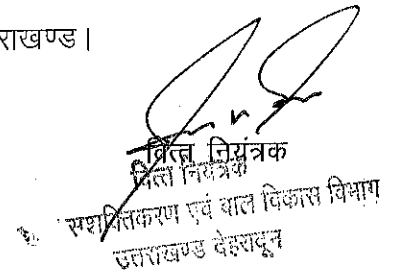 राखण्ड।
वित्त नियंत्रक
वित्त नियंत्रक
सशक्तिकरण एवं बाल विकास विभाग
उत्तराखण्ड देहरादून